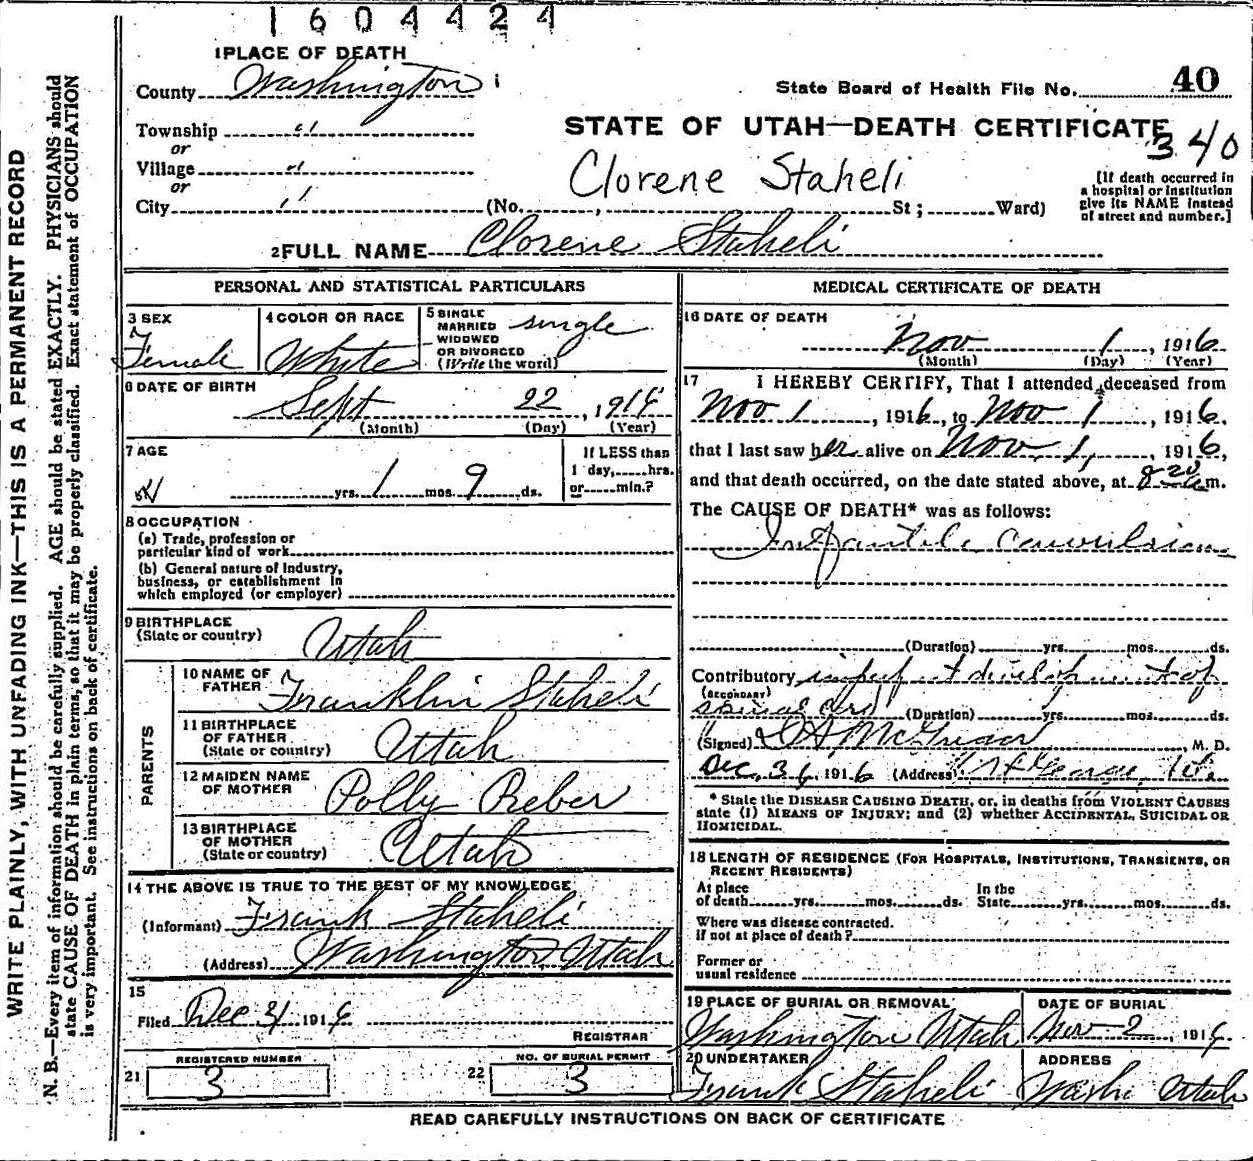 1604424
1 PLACE OF DEATH
County Washington
State Board of Health File No. 40
Township "
STATE OF UTAH—DEATH CERTIFICATE
340
or
Village "
Clorene Staheli
[If death occurred in
a hospital or institution
give its NAME instead
of street and number.]
or
City " (No. , St; Ward)
2 FULL NAME Clorene Staheli
PERSONAL AND STATISTICAL PARTICULARS
3 SEX
Female
4 COLOR OR RACE
White
5 SINGLE
MARRIED
WIDOWED
OR DIVORCED
(Write the word)
single
6 DATE OF BIRTH
Sept 22, 1916
(Month) (Day) (Year)
7 AGE
yrs. 1 mos. 9 ds.
If LESS than
1 day, hrs.
or min.?
8 OCCUPATION
(a) Trade, profession or
particular kind of work
(b) General nature of industry,
business, or establishment in
which employed (or employer)
9 BIRTHPLACE
(State or country)
Utah
PARENTS
10 NAME OF
FATHER
Franklin Staheli
11 BIRTHPLACE
OF FATHER
(State or country)
Utah
12 MAIDEN NAME
OF MOTHER
Polly Reber
13 BIRTHPLACE
OF MOTHER
(State or country)
Utah
14 THE ABOVE IS TRUE TO THE BEST OF MY KNOWLEDGE
(Informant) Frank Staheli
(Address) Washington, Utah
15
Filed Dec 31 1916
REGISTRAR
21 REGISTERED NUMBER
3
22 NO. OF BURIAL PERMIT
3
MEDICAL CERTIFICATE OF DEATH
16 DATE OF DEATH
Nov 1, 1916
(Month) (Day) (Year)
17 I HEREBY CERTIFY, That I attended deceased from
Nov 1, 1916, to Nov 1, 1916,
that I last saw her alive on Nov. 1, 1916,
and that death occurred, on the date stated above, at 8-20 m.
The CAUSE OF DEATH* was as follows:
Infantile Convulsions
(Duration) yrs. mos. ds.
Contributory imperfect development of
(SECONDARY)
spinal cord (Duration) yrs. mos. ds.
(Signed) , M. D.
Dec, 31, 1916 (Address) St George, Ut.
* State the DISEASE CAUSING DEATH, or, in deaths from VIOLENT CAUSES
state (1) MEANS OF INJURY; and (2) whether ACCIDENTAL, SUICIDAL OR
HOMICIDAL.
18 LENGTH OF RESIDENCE (FOR HOSPITALS, INSTITUTIONS, TRANSIENTS, OR
RECENT RESIDENTS)
At place
of death yrs. mos. ds.
In the
State yrs. mos. ds.
Where was disease contracted.
if not at place of death?
Former or
usual residence
19 PLACE OF BURIAL OR REMOVAL
Washington Utah
DATE OF BURIAL
Nov 2, 1916
20 UNDERTAKER
Frank Staheli
ADDRESS
Wash Utah
READ CAREFULLY INSTRUCTIONS ON BACK OF CERTIFICATE
WRITE PLAINLY, WITH UNFADING INK—THIS IS A PERMANENT RECORD
N. B.—Every item of information should be carefully supplied. AGE should be stated EXACTLY. PHYSICIANS should
state CAUSE OF DEATH in plain terms, so that it may be properly classified. Exact statement of OCCUPATION
is very important. See instructions on back of certificate.